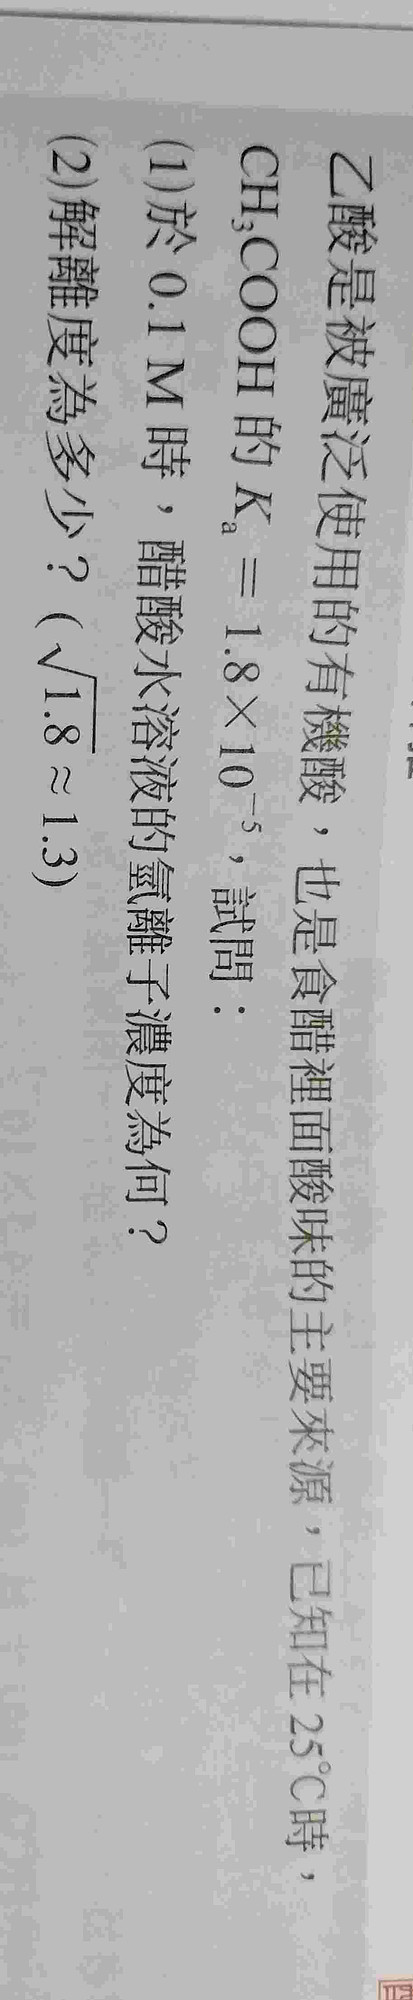 乙酸是被廣泛使用的有機酸，也是食醋裡面酸味的主要來源，已知在 25℃時，
CH₃COOH 的 Kₐ = 1.8×10⁻⁵，試問：
(1)於 0.1 M 時，醋酸水溶液的氫離子濃度為何？
(2)解離度為多少？(√1.8 ≈ 1.3)